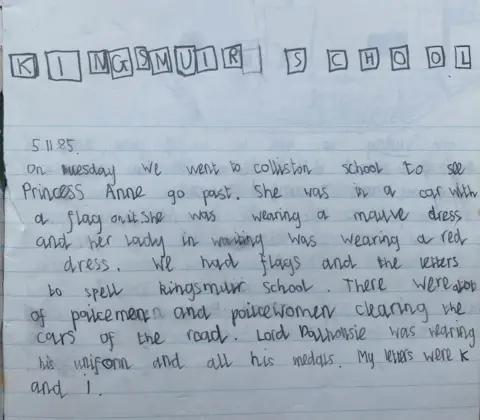 KINGSMUIR SCHOOL
5.11.85.
On Tuesday we went to colliston school to see
Princess Anne go past. She was in a car with
a flag on it. She was wearing a mauve dress
and her Lady in waiting was wearing a red
dress. We had flags and the letters
to spell kingsmuir school. There were a lot
of policemen and policewomen clearing the
cars of the road. Lord Dalhousie was wearing
his uniform and all his medals. My letters were K
and i.